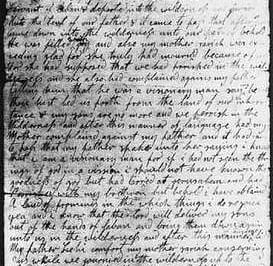 servant of laban & departed into the wilderness &
unto the tent of our father & it came to pass that after
came down into the wilderness unto our father behold
he was filled with joy and also my mother sariah was ex
ceding glad for she truly had mourned because of
for she had supposed that we had perished in the wil
derness and she also had complained against my fath
telling him that he was a visionary man saying
thou hast led us forth from the land of our inheri
tance & my sons are no more and we perish in the
wilderness and after this manner of language had my
Mother complained against my father and it had
pass that my father spake unto her saying I know
that I am a visionary man for if I had not seen the thi
ngs of god in a vision I should not have known the
goodness of god but had tarried at jerusalem and had
perished with my brethren but behold I have obtain
a land of promise in the which things I do
yea and I know that the lord will deliver my sons
out of the hands of laban and bring them down again
unto us in the wilderness and after this manner of
My father lehi comfort my mother sariah concerning
us while we journied in the wilderness up to the